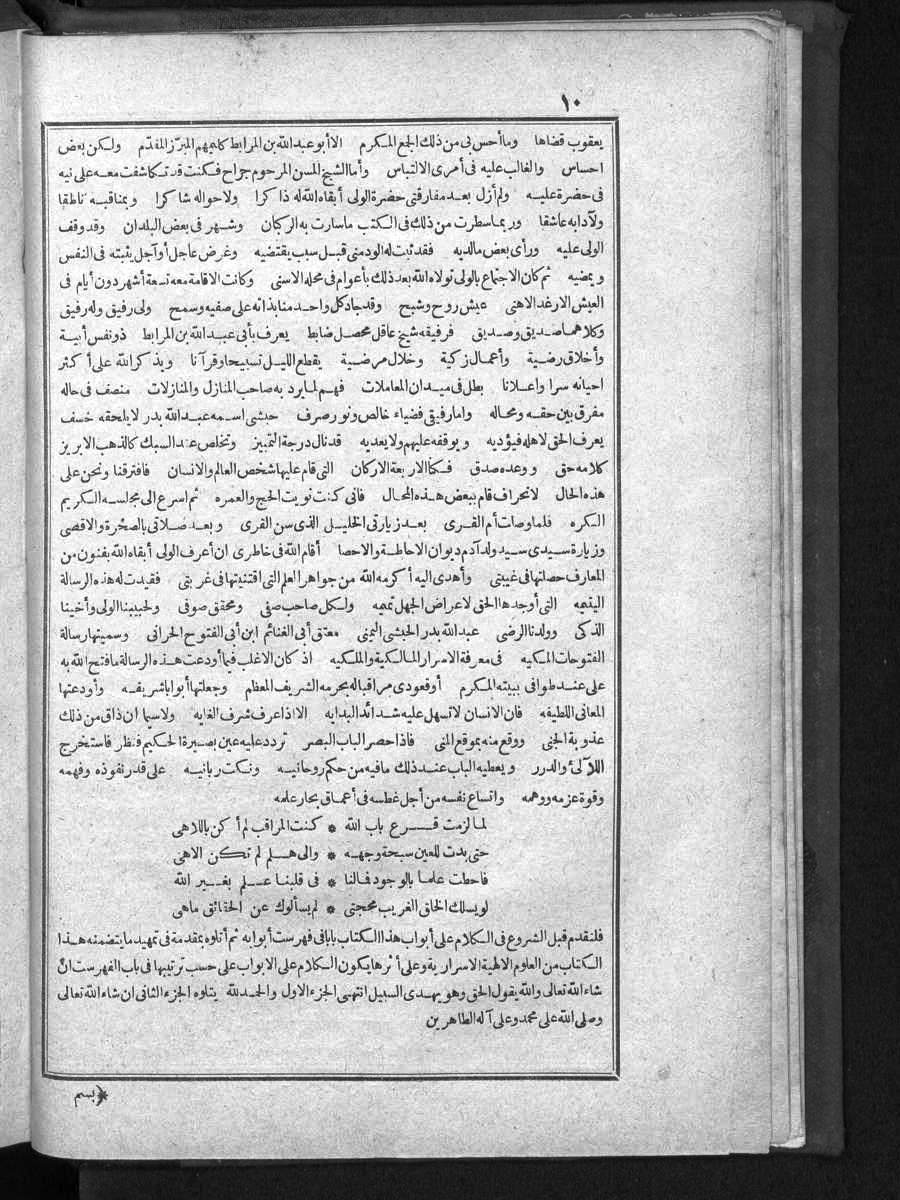 ١٠
يعقوب قضاها وما أحس بى من ذلك الجمع المكرم الا أبو عبد الله بن المرابط كليمهم المبرّز المقدّم ولكن بعض
احساس والغالب عليه فى أمرى الالتباس وأما الشيخ المسن المرحوم جراح فكنت قد تكاشفت معه على نيه
فى حضرة عليه ولم أزل بعد مفارقتى حضرة الولى أبقاه الله له ذاكرا ولاحواله شاكرا وبمناقبه ناطقا
ولآدابه عاشقا وربما سطرت من ذلك فى الكتب ما سارت به الركبان وشهر فى بعض البلدان وقد وقف
الولى عليه ورأى بعض مالديه فقد ثبت له الود منى قبل سبب يقتضيه وغرض عاجل أو آجل يثبته فى النفس
ويمضيه ثم كان الاجتماع بالولى تولاه الله بعد ذلك بأعوام فى محله الاسنى وكانت الاقامة معه تسعة أشهر دون أيام فى
العيش الارغد الاهنى عيش روح وشبح وقد جاد كل واحد منا بذاته على صفيه وسمح ولى رفيق وله رفيق
وكلاهما صديق وصديق فرفيقه شيخ عاقل محصل ضابط يعرف بأبى عبد الله بن المرابط ذو نفس أبية
وأخلاق رضية وأعمال زكية وخلال مرضية يقطع الليل تسبيحا وقرآنا ويذكر الله على أكثر
احيانه سرا واعلانا بطل فى ميدان المعاملات فهم لما يرد به صاحب المنازل والمنازلات منصف فى حاله
مفرق بين حقه ومحاله وأما رفيقى فضياء خالص ونور صرف حبشى اسمه عبد الله بدر لا يلحقه خسف
يعرف الحق لاهله فيؤديه ويوقفه عليهم ولا يعديه قد نال درجة التمييز وتخلص عند السبك كالذهب الابريز
كلامه حق ووعده صدق فكنا الاربعة الاركان التى قام عليها شخص العالم والانسان فافترقنا ونحن على
هذه الحال لانحراف قام ببعض هذه المحال فانى كنت نويت الحج والعمره ثم اسرع الى مجلسه الكريم
الكره فلما وصلت أم القرى بعد زيارتى الخليل الذى سن القرى وبعد صلاتى بالصخرة والاقصى
وزيارة سيدى سيد ولد آدم ديوان الاحاطة والاحصا أقام الله فى خاطرى ان أعرف الولى أبقاه الله بفنون من
المعارف حصلتها فى غيبتى وأهدى اليه أكرمه الله من جواهر العلم التى اقتنيتها فى غربتى فقيدت له هذه الرسالة
اليتيمه التى أوجدها الحق لاعراض الجهل تميمه ولكل صاحب صفى ومحقق صوفى ولحبيبنا الولى وأخينا
الذكى وولدنا الرضى عبد الله بدر الحبشى اليمنى معتق أبى الغنائم ابن أبى الفتوح الحرانى وسميتها رسالة
الفتوحات المكيه فى معرفة الاسرار المالكية والملكيه اذ كان الاغلب فيما أودعت هذه الرسالة ما فتح الله به
على عند طوافى ببيته المكرم أو قعودى مراقبا له بحرمه الشريف المعظم وجعلتها أبوابا شريفه وأودعتها
المعانى اللطيفه فان الانسان لا تسهل عليه شدائد البدايه الا اذا عرف شرف الغايه ولا سيما ان ذاق من ذلك
عذوبة الجنى ووقع منه بموقع المنى فاذا حصر الباب البصر تردد عليه عين بصيرة الحكيم فنظر فاستخرج
اللآلئ والدرر ويعطيه الباب عند ذلك ما فيه من حكم روحانيه ونكت ربانيه على قدر نفوذه وفهمه
وقوة عزمه ووهمه واتساع نفسه من أجل غطسه فى أعماق بحار علمه
لما لزمت قرع باب الله * كنت المراقب لم أكن باللاهى
حتى بدت للعين سبحة وجهه * والى هلم لم تكن الاهى
فاحطت علما بالوجود فما لنا * فى قلبنا علم بغير الله
لو يسلك الخلق الغريب محجتى * لم يسألوك عن الحقائق ماهى
فلنقدم قبل الشروع فى الكلام على أبواب هذا الكتاب بابا فى فهرست أبوابه ثم أتلوه بمقدمة فى تمهيد ما يتضمنه هذا
الكتاب من العلوم الالهية الاسرارية وعلى أثرها يكون الكلام على الابواب على حسب ترتيبها فى باب الفهرست ان
شاء الله تعالى والله يقول الحق وهو يهدى السبيل انتهى الجزء الاول والحمد لله يتلوه الجزء الثانى ان شاء الله تعالى
وصلى الله على محمد وعلى آله الطاهرين
﴿بسم